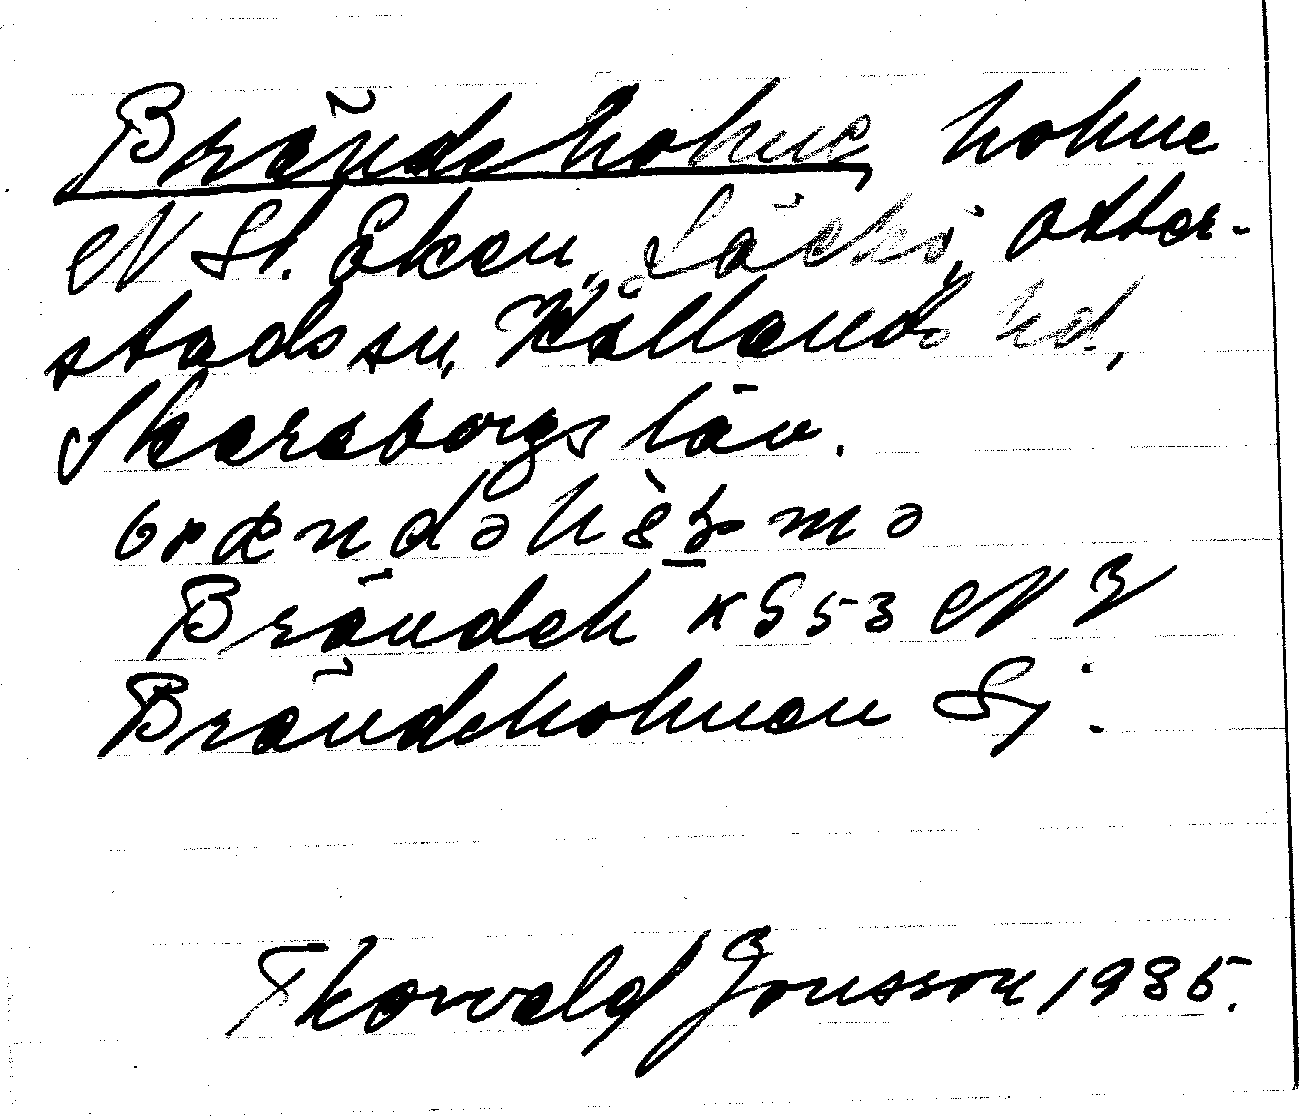 Brändeholme, holme
N St. Eken, Läckö, Otter-
stads sn, Kållands hd,
Skaraborgs län.
Brändeh KG 53 NV
Brändeholmen Sj.
Thorvald Jonsson 1935.